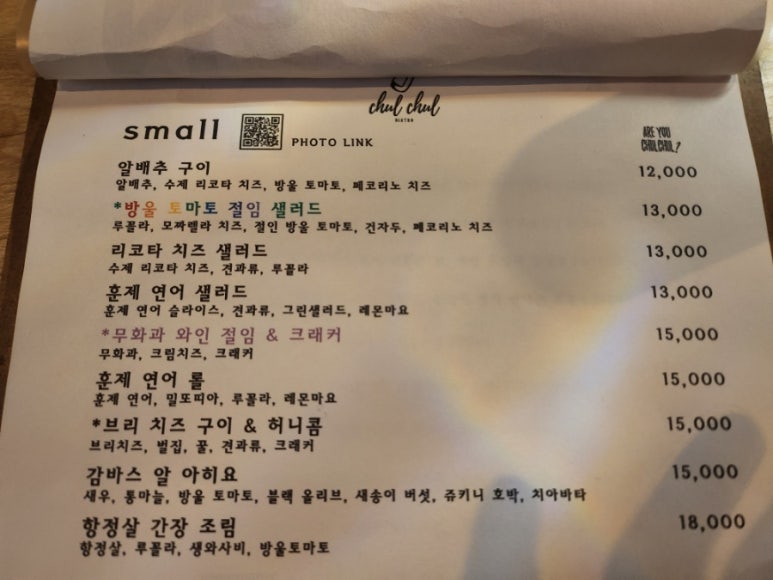 chul chul
BISTRO
small
PHOTO LINK
ARE YOU
CHULCHUL?
알배추 구이 12,000
알배추, 수제 리코타 치즈, 방울 토마토, 페코리노 치즈
*방울 토마토 절임 샐러드 13,000
루꼴라, 모짜렐라 치즈, 절인 방울 토마토, 건자두, 페코리노 치즈
리코타 치즈 샐러드 13,000
수제 리코타 치즈, 견과류, 루꼴라
훈제 연어 샐러드 13,000
훈제 연어 슬라이스, 견과류, 그린샐러드, 레몬마요
*무화과 와인 절임 & 크래커 15,000
무화과, 크림치즈, 크래커
훈제 연어 롤 15,000
훈제 연어, 밀또띠아, 루꼴라, 레몬마요
*브리 치즈 구이 & 허니콤 15,000
브리치즈, 벌집, 꿀, 견과류, 크래커
감바스 알 아히요 15,000
새우, 통마늘, 방울 토마토, 블랙 올리브, 새송이 버섯, 쥬키니 호박, 치아바타
항정살 간장 조림 18,000
항정살, 루꼴라, 생와사비, 방울토마토